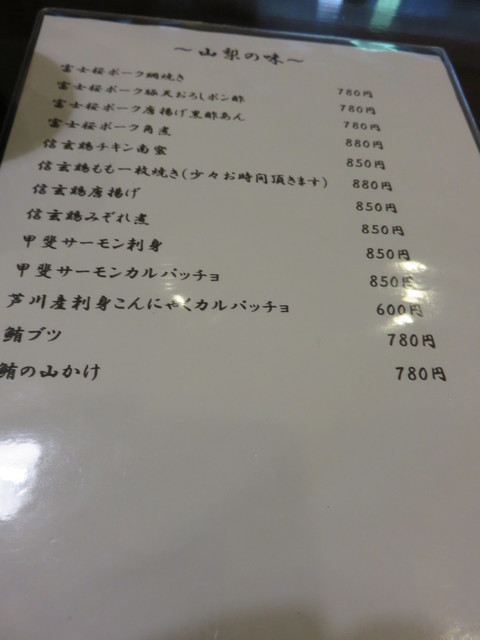 ～山梨の味～
富士桜ポーク網焼き 780円
富士桜ポーク豚天おろしポン酢 780円
富士桜ポーク唐揚げ黒酢あん 780円
富士桜ポーク角煮 880円
信玄鶏チキン南蛮 850円
信玄鶏もも一枚焼き(少々お時間頂きます) 880円
信玄鶏唐揚げ 850円
信玄鶏みぞれ煮 850円
甲斐サーモン刺身 850円
甲斐サーモンカルパッチョ 850円
芦川産刺身こんにゃくカルパッチョ 600円
鮪ブツ 780円
鮪の山かけ 780円